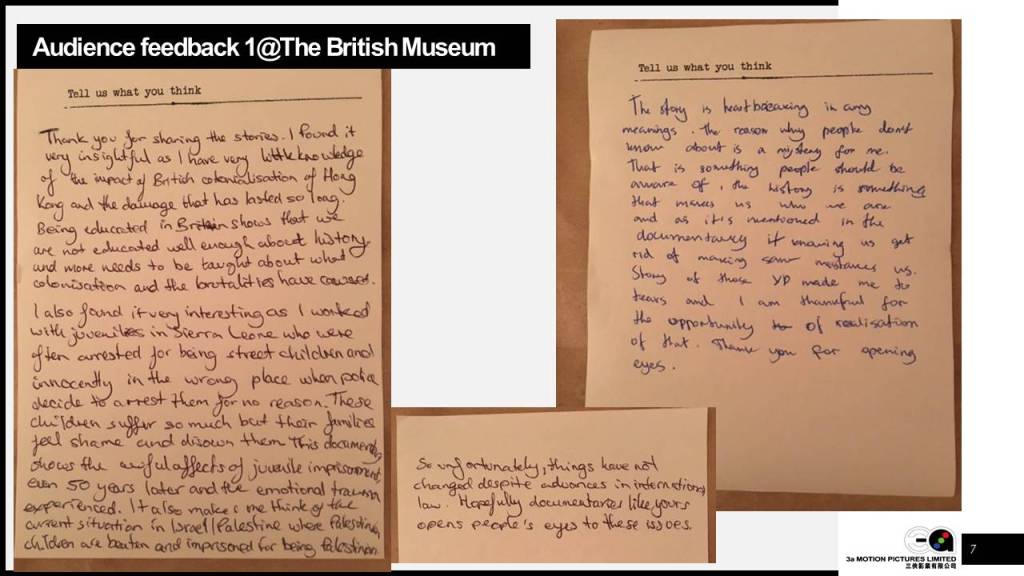 Audience feedback 1@The British Museum
Tell us what you think
Thank you for sharing the stories. I found it
very insightful as I have very little knowledge
of the impact of British colonialisation of Hong
Kong and the damage that has lasted so long.
Being educated in Britain shows that we
are not educated well enough about history
and more needs to be taught about what
colonisation and the brutalities have caused.
I also found it very interesting as I worked
with juveniles in Sierra Leone who were
often arrested for being street children and
innocently in the wrong place when police
decide to arrest them for no reason. These
children suffer so much but their families
feel shame and disown them. This documentary
shows the awful affects of juvenile imprisonment
even 50 years later and the emotional trauma
experienced. It also makes me think of the
current situation in Israel/Palestine where Palestinian
children are beaten and imprisoned for being Palestinian
So unfortunately, things have not
changed despite advances in international
law. Hopefully documentaries like yours
opens people's eyes to these issues.
Tell us what you think
The story is heartbreaking in any
meanings. The reason why people don't
know about is a mystery for me.
That is something people should be
aware of, the history is something
that makes us who we are
and as it's mentioned in the
documentary if knowing us get
rid of making same mistakes us.
Story of those YP made me to
tears and I am thankful for
the opportunity to of realisation
of that. Thank you for opening
eyes.
3a MOTION PICTURES LIMITED
三俠影業有限公司
7